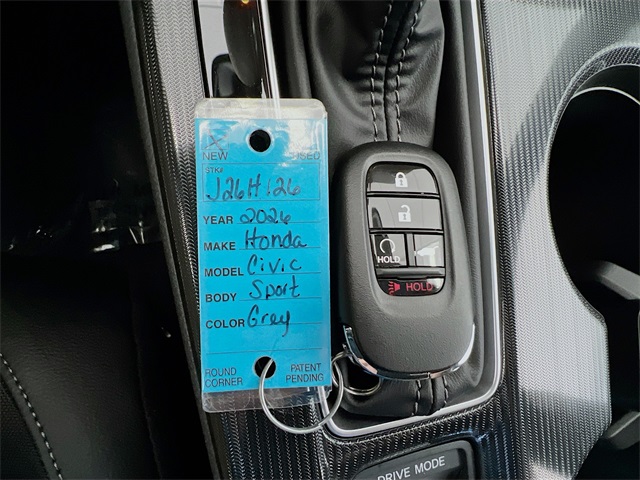 X
NEW USED
STK#
J26H126
YEAR 2026
MAKE Honda
MODEL Civic
BODY Sport
COLOR Grey
ROUND CORNER
PATENT PENDING
HOLD
HOLD
DRIVE MODE